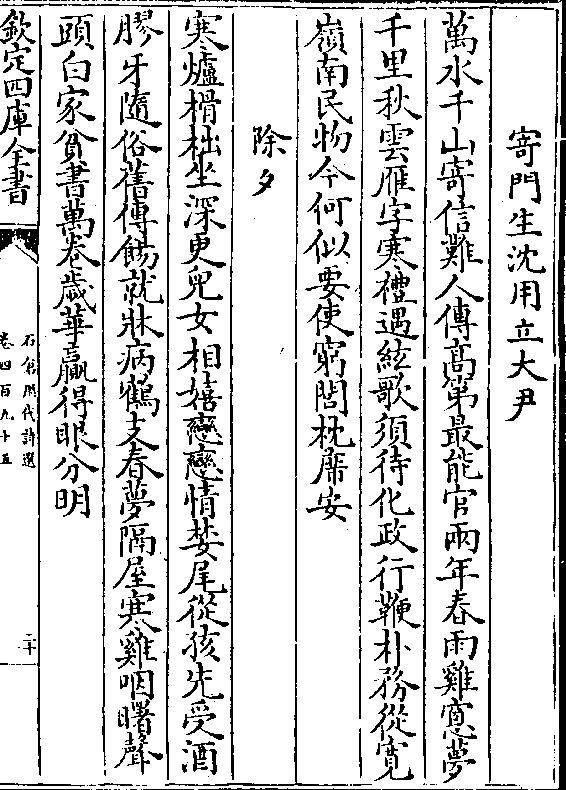 寄門生沈用立大尹
萬水千山寄信難人傳髙第最能官兩年春雨雞窓夢
千里秋雲雁字寒禮遇絃歌須待化政行鞭朴務從寛
嶺南民物今何似要使窮閻枕席安
除夕
寒爐榾柮坐深更兒女相嬉戀戀情婪尾從孩先受酒
膠牙隨俗舊傳餳就牀病鶴支春夢隔屋寒雞咽曙聲
頭白家貧書萬卷歳華贏得眼分明
欽定四庫全書
石倉歴代詩選
卷四百九十五
二十